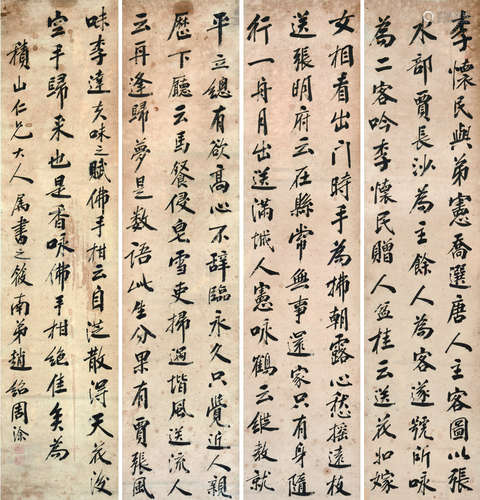 李懷民與弟憲喬選唐人主客圖以張
水部賈長沙為主餘人為客遂號所咏
為二客吟李懷民贈人盆桂云送花如嫁
女相看出門時手為拂朝露心愁搖遠枝
送張明府云在縣常無事還家只有身隨
行一舟月出送滿城人憲咏鶴云縱教就
平立總有欲高心不辭臨永久只覺近人親
歷下廳云馬餐侵皂雪吏掃過階風送流人
云再逢歸夢是數語此生分果有賈張風
味李達夫味之賦佛手柑云自從散得天花後
空手歸來也是香咏佛手柑絕佳矣為
積山仁兄大人屬書之後南弟趙紹周涂